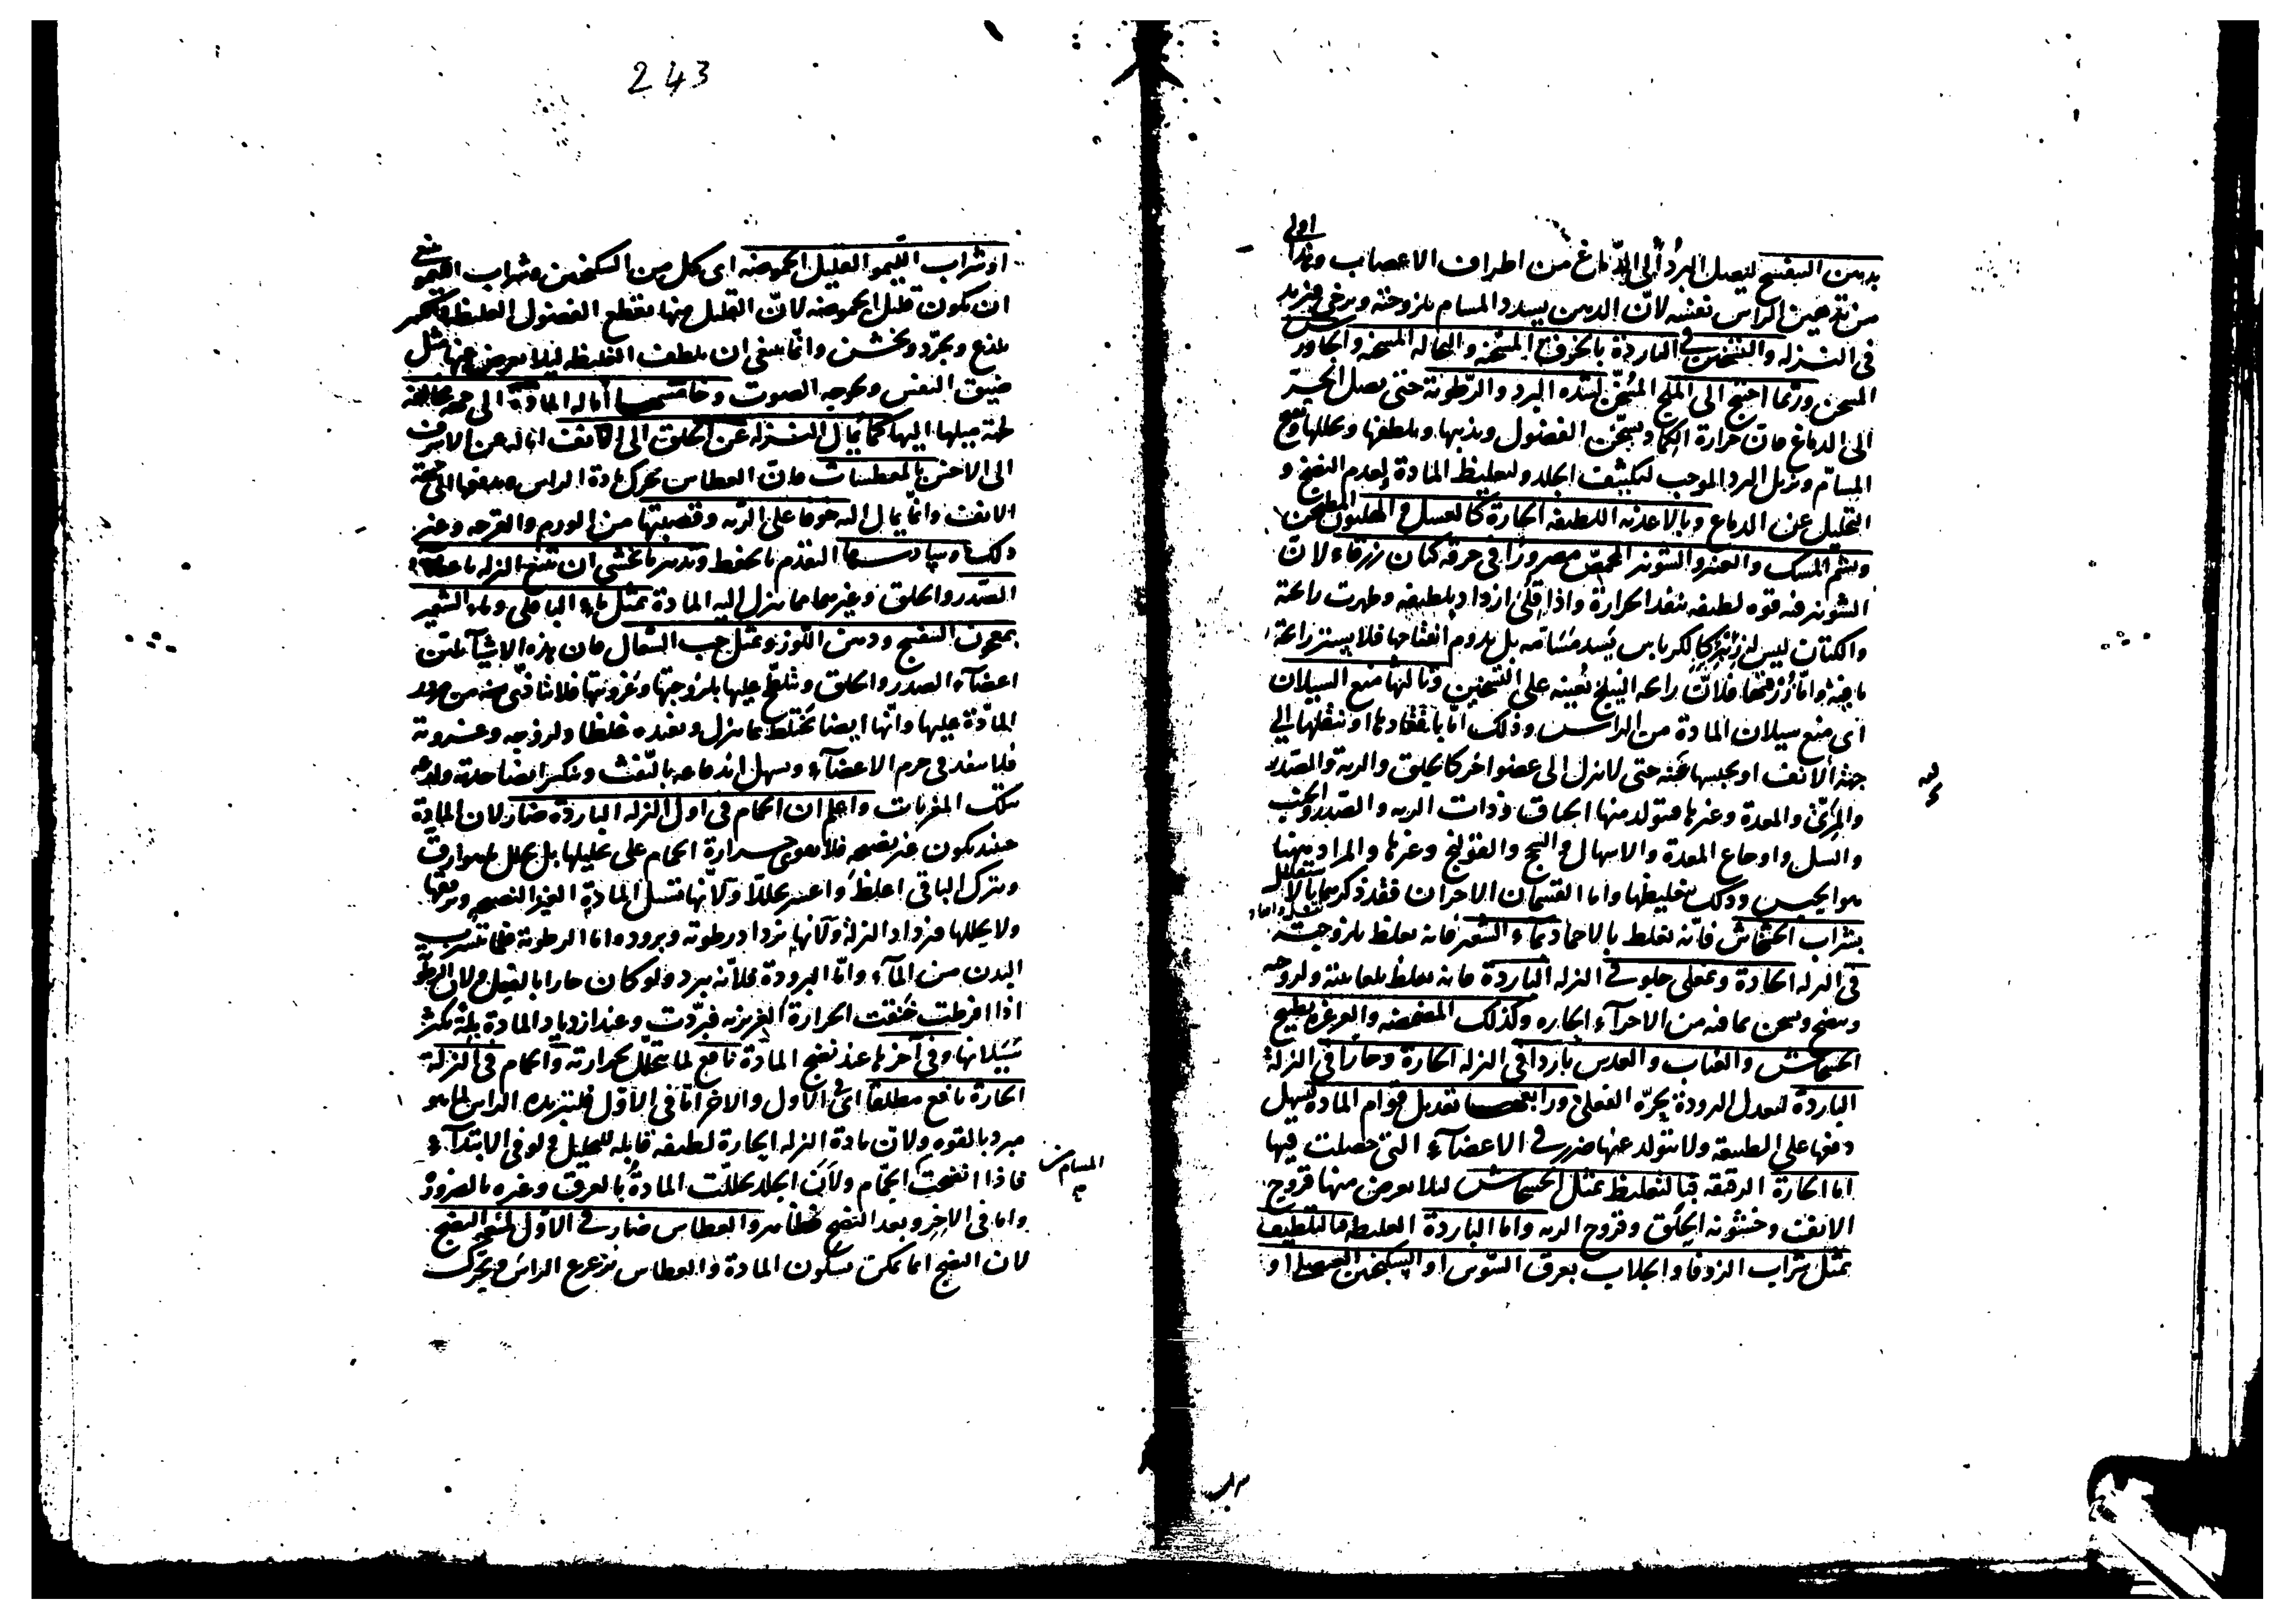 بدهن البنفسج ليصل البرد الى الدماغ من اطراف الاعصاب وهذا اولى
من تدهين الراس نفسه لان الدهن يسدد المسام بلزوجته ويرخى فيزيد
فى النزله والتسخين فى الباردة بالخرق المسخنة والنخالة المسخنة والجاورس
المسخن وربما احتيج الى الملح المسخن لشدة البرد والرطوبة حتى يصل الحر
الى الدماغ فان حرارة الكماد يسخن الفضول ويذيبها ويلطفها ويحللها ويفتح
المسام ويزيل البرد الموجب لتكثيف الجلد ولتغليظ المادة ولعدم النضج و
التحليل عن الدماغ وبالاغذية اللطيفة الحارة كالعسل والهليون المطجن
وبشم المسك والعنبر والشونيز المحمص مصرورا فى خرقة كتان زرقاء لان
الشونيز فيه قوه لطيفه شديدة الحرارة واذا قلى ازداد تلطيفه وظهرت رائحته
والكتان ليس له زئبر كالكرباس يسد مسامه بل يدوم انفتاحها فلا يستر رائحة
ما فيه وانما زرقتها فلان رائحه النيلج تعينه على التسخين وثالثها منع السيلان
اى منع سيلان المادة من الراس وذلك اما باقتادها او بنقلها الى
جهة الانف او بحبسها عنه حتى لا ينزل الى عضو اخر كالحلق والرية والصدر
والمرئ والمعدة وغيرها فيتولد منها الخناق وذات الريه والصدر والجنب
والسل واوجاع المعدة والاسهال والسحج والقولنج وغيرها والمراد ههنا
هو الحبس وذلك بتغليظها واما القسمان الاخران فقد ذكرهما بالاستقلال
بشراب الخشخاش فانه يغلظ بالاجماد وبماء الشعير فانه يغلظ بلزوجته
فى النزله الحادة وبمغلى حلو فى النزله الباردة فانه يغلظ بلعابيته ولزوجته
وينضج ويسخن بما فيه من الاجزاء الحاره وكذلك المضمضه والغرغره بطبيخ
الخشخاش والعناب والعدس باردا فى النزله الحارة وحارا فى النزلة
الباردة لتعدل البرودة بحره الفعلى ورابعها تعديل قوام المادة ليسهل
دفعها على الطبيعه ولا يتولد عنها ضرر فى الاعضاء التى حصلت فيها
اما الحارة الرقيقه فبالتغليظ بمثل الخشخاش لئلا يعرض منها قروح
الانف وخشونه الحلق وقروح الريه واما الباردة الغليظه فبالتلطيف
بمثل شراب الزوفا والجلاب بعرق السوس او السكنجبين العنصلى او
شراب
243
او شراب الليمو القليل الحموضه اى كل من السكنجبين وشراب الليمو ينبغى
ان يكون قليل الحموضه لان القليل منها يقطع الفضول الغليظه والكثير
يلذع ويجرد ويخشن وانما ينبغى ان يلطف الغليظه ليلا يعرض عنها مثل
ضيق النفس وبحوحه الصوت وخامسها امالة المادة الى جهة مخالفة
لجهة ميلها اليها كما يمال النزله عن الحلق الى الانف امالة عن الاشرف
الى الاخس بالمعطسات فان العطاس يحرك مادة الراس ويدفعها الى جهة
الانف وانما يمال اليه خوفا على الريه وقصبتها من الورم والقرحه وغير
ذلك وسادسها التقدم بالحفظ وتدبير ما يخشى ان تتبع النزله باعضاء
الصدر والحلق وغيرهما مما ينزل اليه المادة بمثل ماء الباقلى وماء الشعير
بمعجون البنفسج ودهن اللوز وبمثل حب السعال فان هذه الاشياء تلين
اعضاء الصدر والحلق وتلطخ عليها بلزوجتها وغرويتها فلا تتاذى من مرور
المادة عليها وانها ايضا تختلط بما ينزل ويفيده غلظا ولزوجه وغروية
فلا ينفذ فى جرم الاعضاء ويسهل اندفاعه بالنفث وينكسر ايضا حدته ولذعه
بتلك المغريات واعلم ان الحمام فى اول النزله الباردة ضار لان المادة
حينئذ يكون غير نضيجه فلا يقوى حرارة الحمام على تحليلها بل يحلل ما هو ارق
ويترك الباقى اغلظ واعسر تحللا ولانها تسيل المادة الغير النضيجه ويرققها
ولا يحللها فيزداد النزلة ولانها يزداد رطوبه وبروده اما الرطوبه فلما يتشرب
البدن من الماء واما البرودة فلانه يبرد ولو كان حارا بالفعل ولان الرطوبة
اذا افرطت خنقت الحرارة الغريزيه فبردت وعند ازدياد المادة بله يكثر
سيلانها وفى آخرها عند نضج المادة نافع لما يتحلل بحرارته والحمام فى النزلة
الحارة نافع مطلقا اى فى الاول والاخر اما فى الاول فلتبريده الراس لما هو
مبرد بالقوه ولان مادة النزله الحارة لطيفه قابله للتحليل ولو فى الابتداء
فاذا انفتحت المسام بالحمام ولان الجلد تحللت المادة بالعرق وغيره بالضرورة
واما فى الاخر وبعد النضج فظاهر والعطاس ضار فى الاول لمنعه النضج
لان النضج انما يمكن بسكون المادة والعطاس يزعزع الراس ويحرك